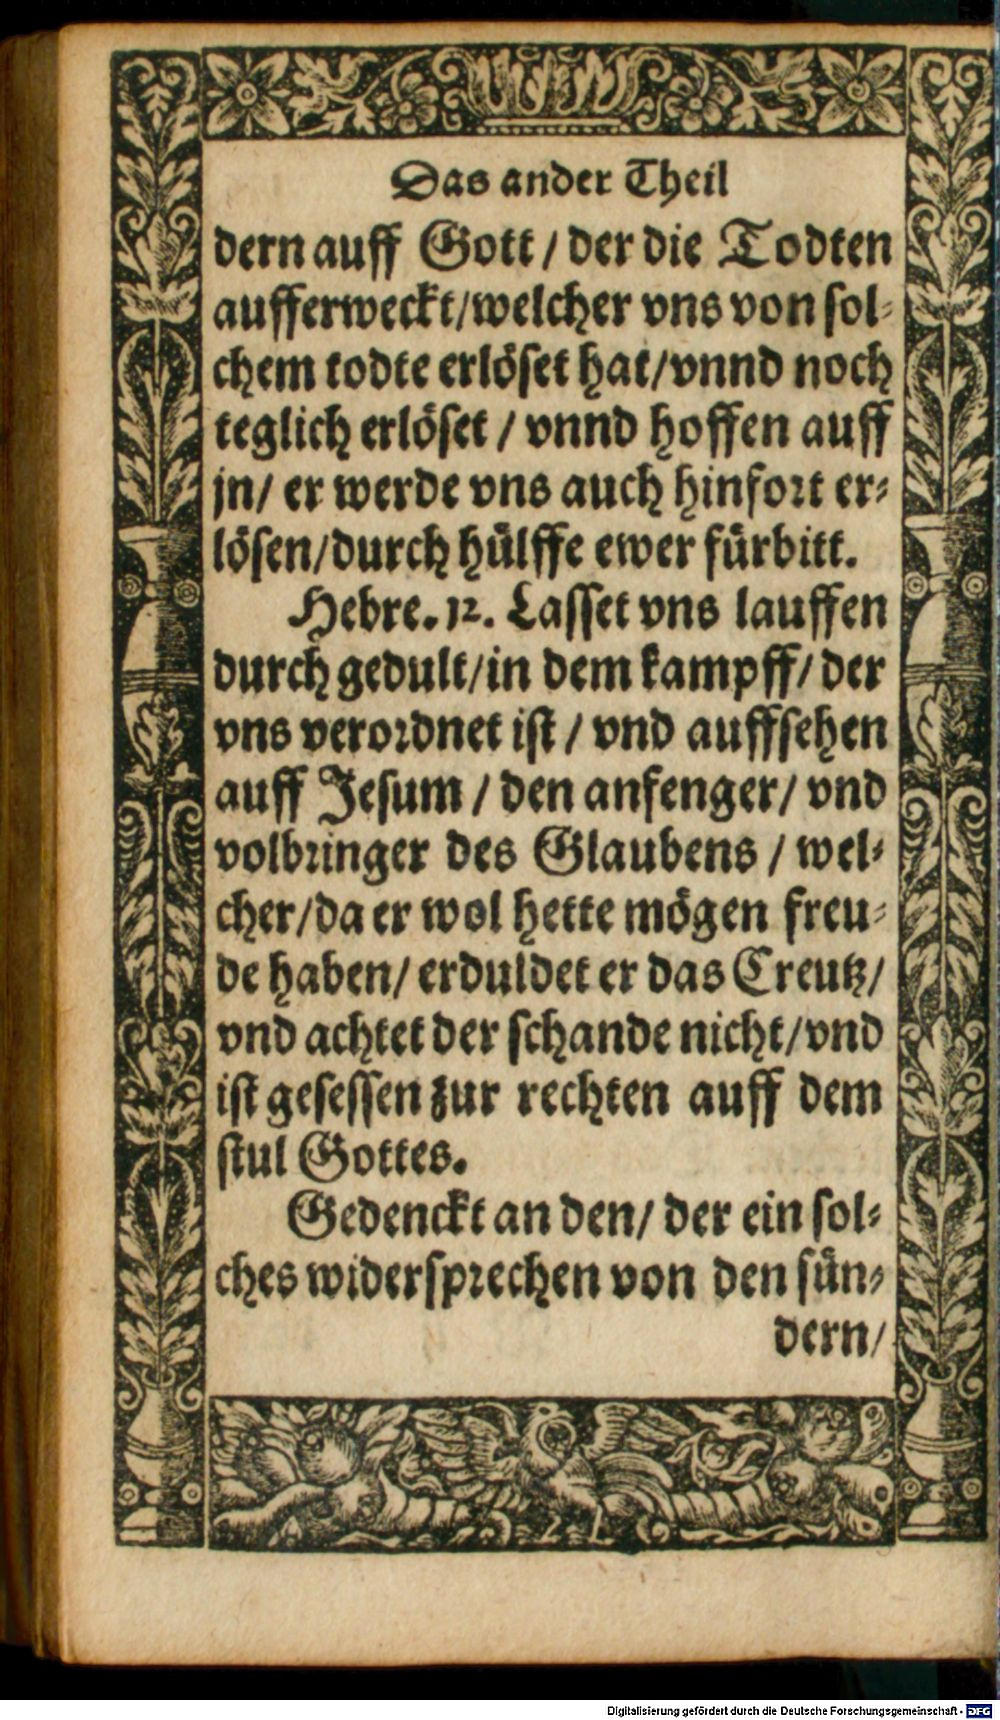 Das ander Theil
dern auff Gott / der die Todten
aufferweckt/welcher vns von sol-
chem todte erlöset hat/vnnd noch
teglich erlöset / vnnd hoffen auff
jn/ er werde vns auch hinfort er-
lösen/durch hülffe ewer fürbitt.
Hebre. 12. Lasset vns lauffen
durch gedult/in dem kampff/ der
vns verordnet ist / vnd auffsehen
auff Jesum / den anfenger/ vnd
volbringer des Glaubens / wel-
cher/da er wol hette mögen freu-
de haben/ erduldet er das Creutz/
vnd achtet der schande nicht/vnd
ist gesessen zur rechten auff dem
stul Gottes.
Gedenckt an den/ der ein sol-
ches widersprechen von den sün-
dern/
Digitalisierung gefördert durch die Deutsche Forschungsgemeinschaft - DFG